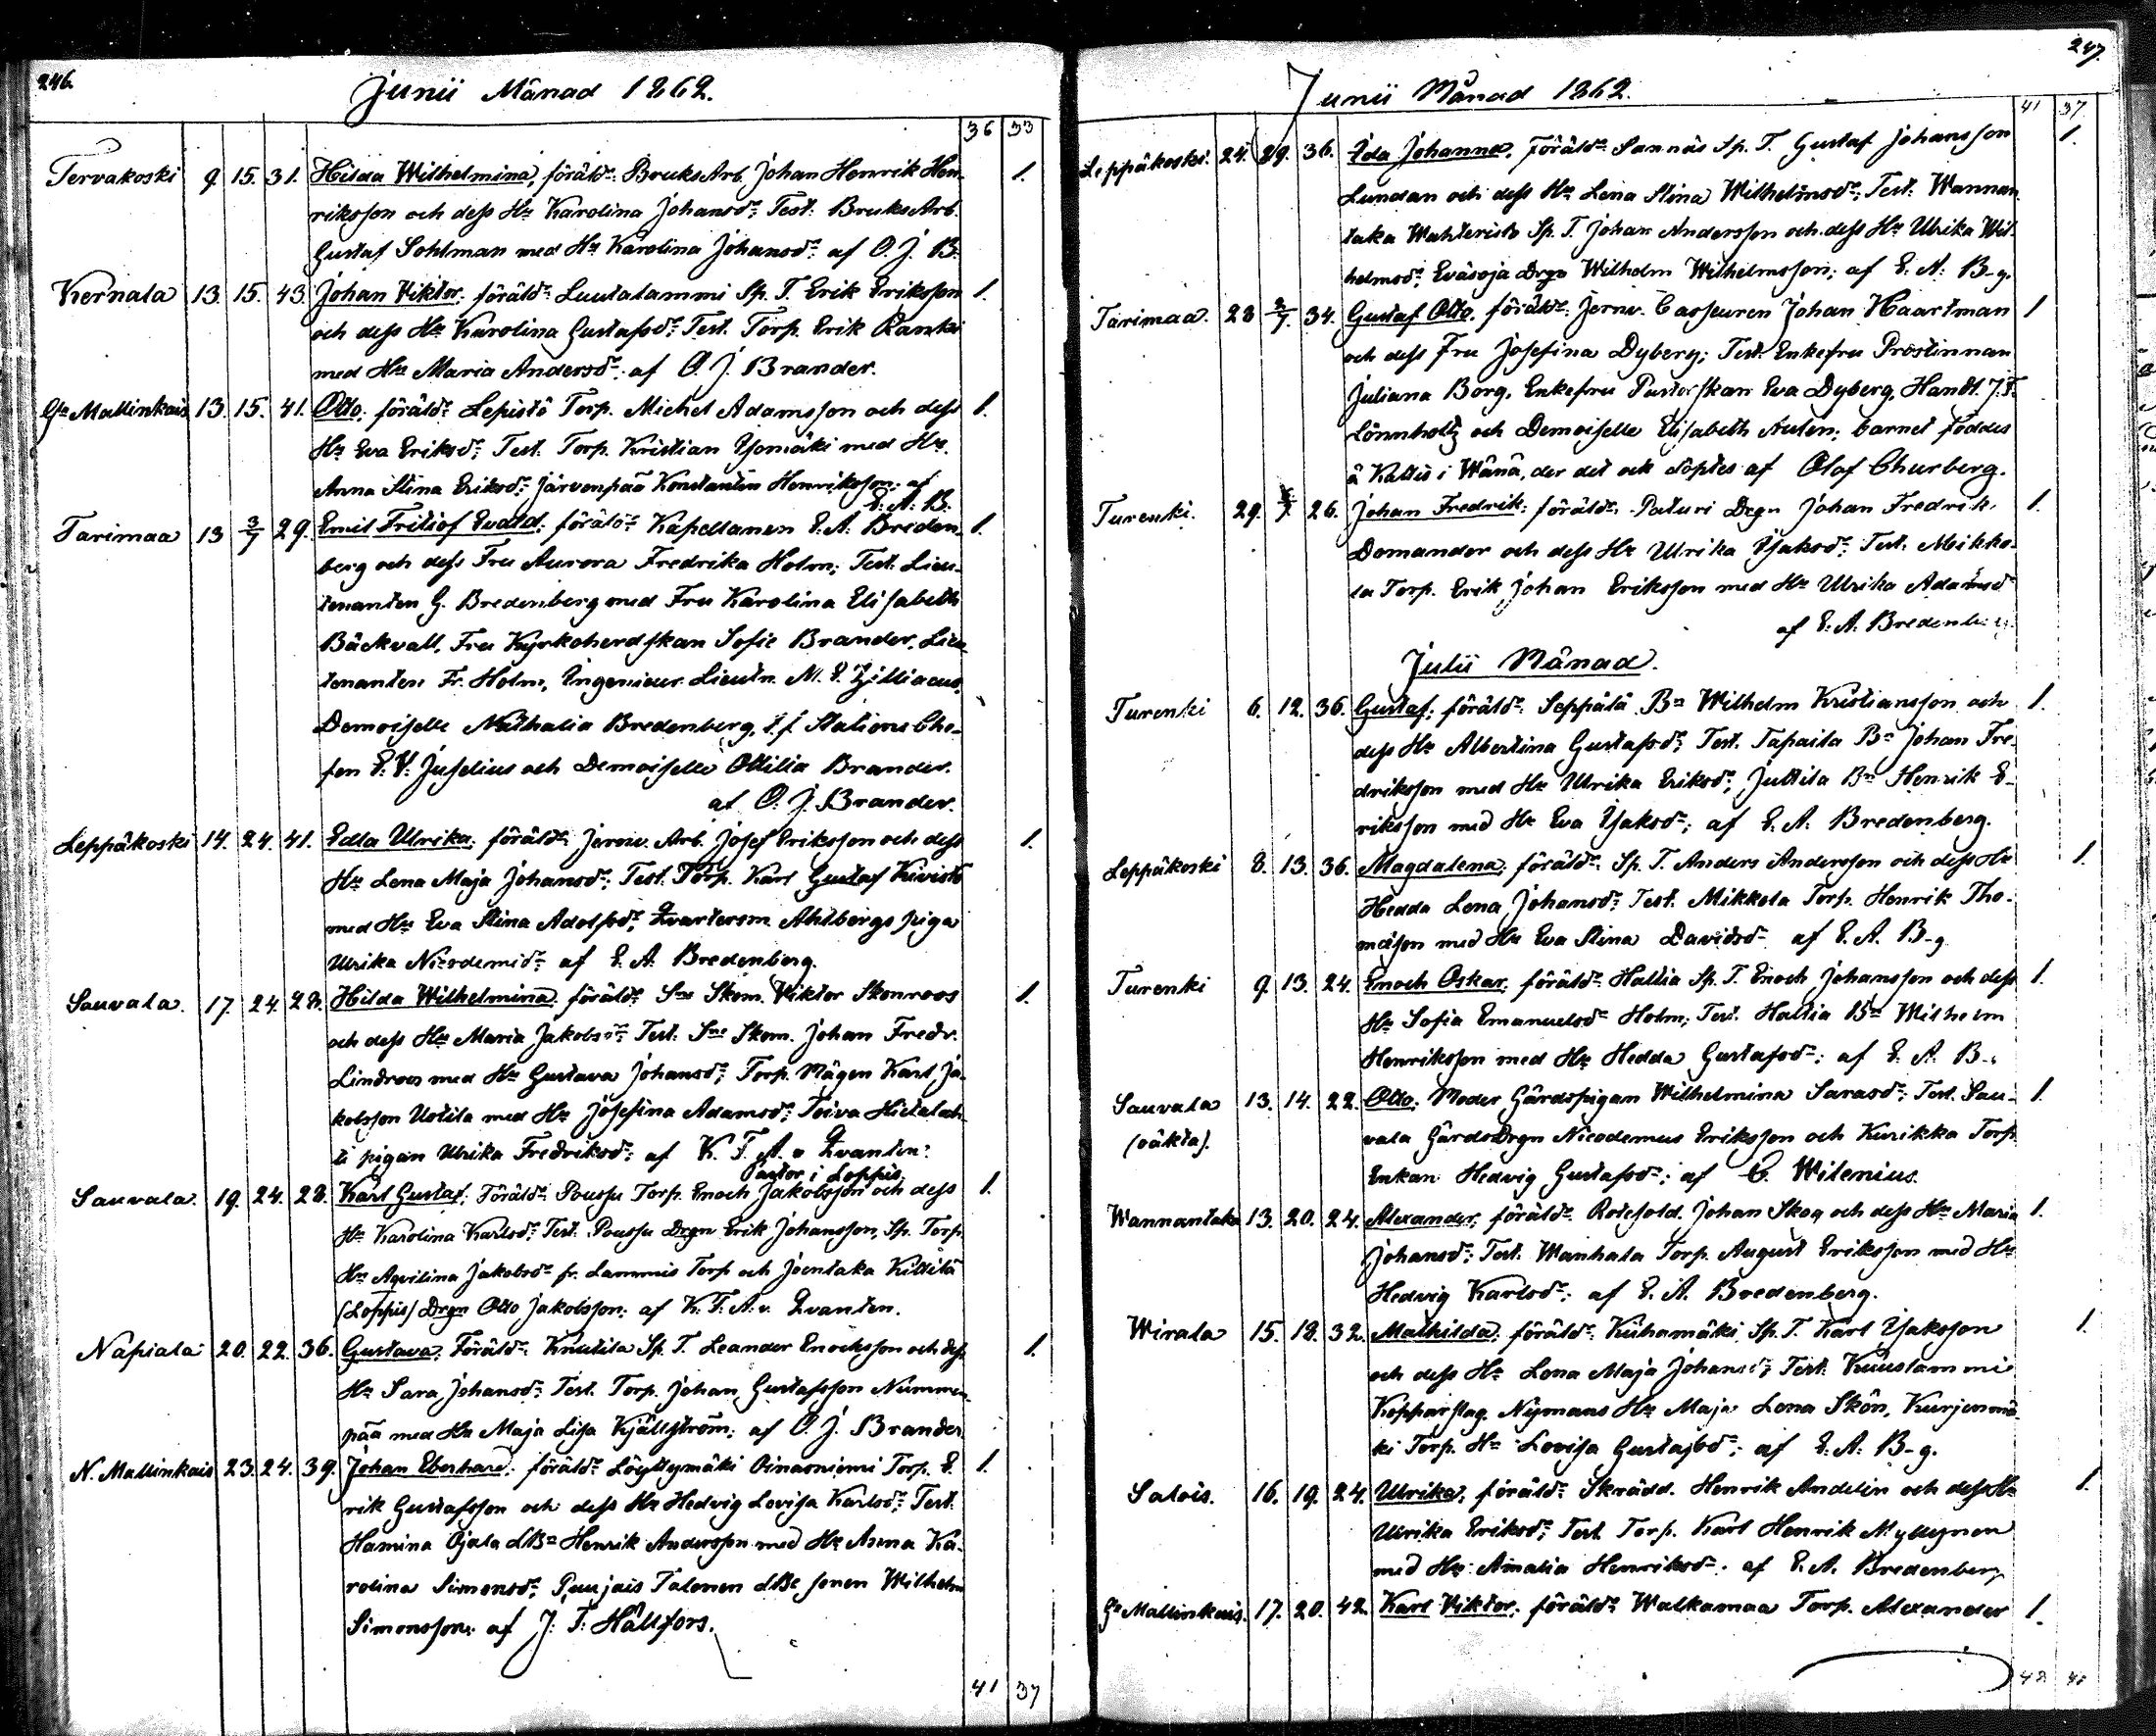 246.
Junii Månad 1862.
36 33
Tervakoski 9. 15. 31. Hilda Wilhelmina, föräldr: Bruks Arb. Johan Henrik Hen- 1.
riksson och dess Hu Karolina Johansdr; Test: Bruks Arb.
Gustaf Sohlman med Hu Karolina Johansdr: af O. J. B.
Kernala 13. 15. 43. Johan Viktor, föräldr: Luutalammi Sp. T. Erik Eriksson 1.
och dess Hu Karolina Gustafsdr; Test. Torp. Erik
med Hu Maria Andersdr: af O. J. Brander.
Mallinkais 13. 15. 41. Otto, föräldr: Lepistö Torp. Michel Adamsson och dess 1.
Hu Eva Eriksdr; Test. Torp. Kristian med Hu
Anna Stina Eriksdr; Järvenpää Konstantin Henriksson: af
E. A. B.
Tarimaa 13 3/7 29. Emil Fritiof Evald: föräldr: Kapellanen E. A. Breden- 1.
berg och dess Fru Aurora Fredrika Holm; Test. Lieu-
tenanten G. Bredenberg med Fru Karolina Elisabeth
Bäckvall, Fru Kyrkoherdskan Sofie Brander, Lieu-
tenanten Fr. Holm, Ingenieur Lieutn. M. E. Zilliacus,
Demoiselle Nathalia Bredenberg, t. f. Stations Che-
fen E. V. Juselius och Demoiselle Ottilia Brander.
af O. J. Brander.
Leppäkoski 14. 24. 41. Edla Ulrika: föräldr: Jernv. Arb. Josef Eriksson och dess 1.
Hu Lena Maja Johansdr; Test. Torp. Karl Gustaf Kivistö
med Hu Eva Stina Adolfsdr; Ahlbergs piga
Ulrika Nicodemidr: af E. A. Bredenberg.
Sauvala. 17. 24. 28. Hilda Wilhelmina, föräldr: Skom. Viktor Stenroos 1.
och dess Hu Maria Jakobsdr; Test: Skom. Johan Fredr.
Lindroos med Hu Gustava Johansdr; Torp. Mågen Karl Ja-
kobsson Uotila med Hu Josefina Adamsdr; Toiva
pigan Ulrika Fredriksdr: af K. F. A. v Qvanten.
Pastor i Loppis.
Sauvala. 19. 24. 28. Karl Gustaf; Föräldr: Poussu Torp. Enoch Jakobsson och dess 1.
Hu Karolina Karlsdr; Test: Poussu Drgn Erik Johansson, Sp. Torp.
Hu Aqvilina Jakobsdr fr. Lammis Torp och Joentaka Kittilä
(Loppis) Drgn Otto Jakobsson: af K. F. A. v. Qvanten.
Napiala 20. 22. 36. Gustava; Föräldr: Knuutila Sp. T. Leander Enochsson och dess 1.
Hu Sara Johansdr; Test. Torp. Johan Gustafsson Nummen-
pää med Hu Maja Lisa Kjällström: af O. J. Brander
N. Mallinkais 23. 24. 39. Johan Eberhard: föräldr: Löyttymäki Oinasniemi Torp. E- 1.
rik Gustafsson och dess Hu Hedvig Lovisa Karlsdr; Test.
Hamina Ojala Henrik Andersson med Hu Anna Ka-
rolina Simonsdr; Puujais Talonen sonen Wilhelm
Simonsson: af J. F. Hällfors.
41 37
247.
Junii Månad 1862.
41 37
Leppäkoski. 24. 29. 36. Ida Johanna, Föräldr: Sannäs Sp. T. Gustaf Johansson 1.
Lundan och dess Hu Lena Stina Wilhelmsdr; Test: Wannan-
taka Wahteristo Sp. T. Johan Andersson och dess Hu Ulrika Wil-
helmsdr; Eväsoja Drgn Wilhelm Wilhelmsson; af E. A. B-g.
Tarimaa. 28 2/7. 34. Gustaf Otto, föräldr: Jernv. Casseuren Johan Haartman 1
och dess Fru Josefina Dyberg; Test. Enkefru Prostinnan
Juliana Borg, Enkefru Pastorskan Eva Dyberg, Handl. J. F.
Lönnholtz och Demoiselle Elisabeth Auten; barnet föddes
å Kattis i Wånå, der det ock döptes af Olof Churberg.
Turenki. 29. 26. Johan Fredrik: föräldr: Paturi Drgn Johan Fredrik 1.
Domander och dess Hu Ulrika Isaksdr; Test. Mikko-
la Torp. Erik Johan Eriksson med Hu Ulrika Adamsdr
af E. A. Bredenberg.
Julii Månad.
Turenki 6. 12. 36. Gustaf; föräldr: Seppälä Bn Wilhelm Kristiansson och 1.
dess Hu Albertina Gustafsdr; Test. Tapaila Bn Johan Fre-
driksson med Hu Ulrika Eriksdr; Juttila Bn Henrik E-
riksson med Hu Eva Isaksdr; af E. A. Bredenberg.
Leppäkoski 8. 13. 36. Magdalena; föräldr: Sp. T. Anders Andersson och dess Hu 1.
Hedda Lena Johansdr; Test. Mikkola Torp. Henrik Tho-
masson med Hu Eva Stina Davidsdr af E. A. B-g
Turenki 9. 13. 24. Enoch Oskar, föräldr: Hallia Sp. T. Enoch Johansson och dess 1.
Hu Sofia Emanuelsdr Holm; Test. Hallia Bn Wilhelm
Henriksson med Hu Hedda Gustafsdr; af E. A. B-
Sauvala 13. 14. 22. Otto; Moder Gårdspigan Wilhelmina Sarasdr; Test. Sau- 1.
(oäkta). vala Gårds Drgn Nicodemus Eriksson och Kurikka Torp.
Enkan Hedvig Gustafsdr; af C. Wilenius.
Wannantaka 13. 20. 24. Alexander; föräldr: Rotesold. Johan Skog och dess Hu Maria 1.
Johansdr; Test. Wanhala Torp. August Eriksson med Hu
Hedvig Karlsdr: af E. A. Bredenberg.
Wirala 15. 18. 32. Mathilda; föräldr: Kuhamäki Sp. T. Karl Isaksson 1.
och dess Hu Lena Maja Johansdr; Test.
Kopparslag. Nymans Hu Maja Lena Skön, Kurjenmä-
ki Torp. Hu Lovisa Gustafsdr; af E. A. B-g.
Salois. 16. 19. 24. Ulrika; föräldr: Skrädd. Henrik Andelin och dess Hu 1.
Ulrika Eriksdr; Test. Torp. Karl Henrik Myllynen
med Hu Amalia Henriksdr. af E. A. Bredenberg
Mallinkais. 17. 20. 42. Karl Viktor; föräldr: Walkamaa Torp. Alexander 1.
48